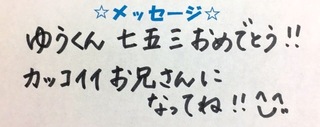 ☆メッセージ☆
ゆうくん 七五三おめでとう!!
カッコイイお兄さんに
なってね!!